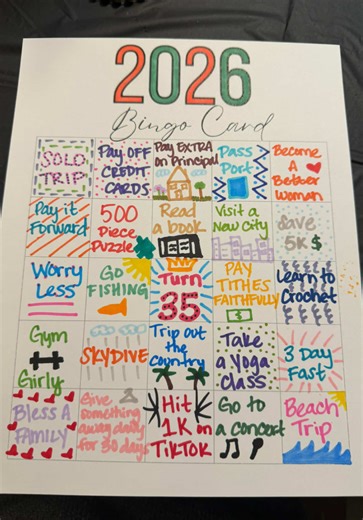 2026
Bingo Card
SOLO
TRIP
Pay OFF
CREDIT
CARDS
Pay EXTRA
on Principal
Pass
Port
Become
A
Better
Woman
Pay it
Forward
500
Piece
Puzzle
Read
a book
Visit a
New City
Save
5K $
Worry
Less
GO
FISHING
Turn
35
PAY
TITHES
FAITHFULLY
$
Learn to
Crochet
Gym
Girly
SKYDIVE
Trip out
the
country
Take
a Yoga
Class
3 Day
Fast
Bless A
FAMILY
Give
something
away daily
for 30 days
Hit
1K on
TikTOK
Go to
a concert
Beach
Trip